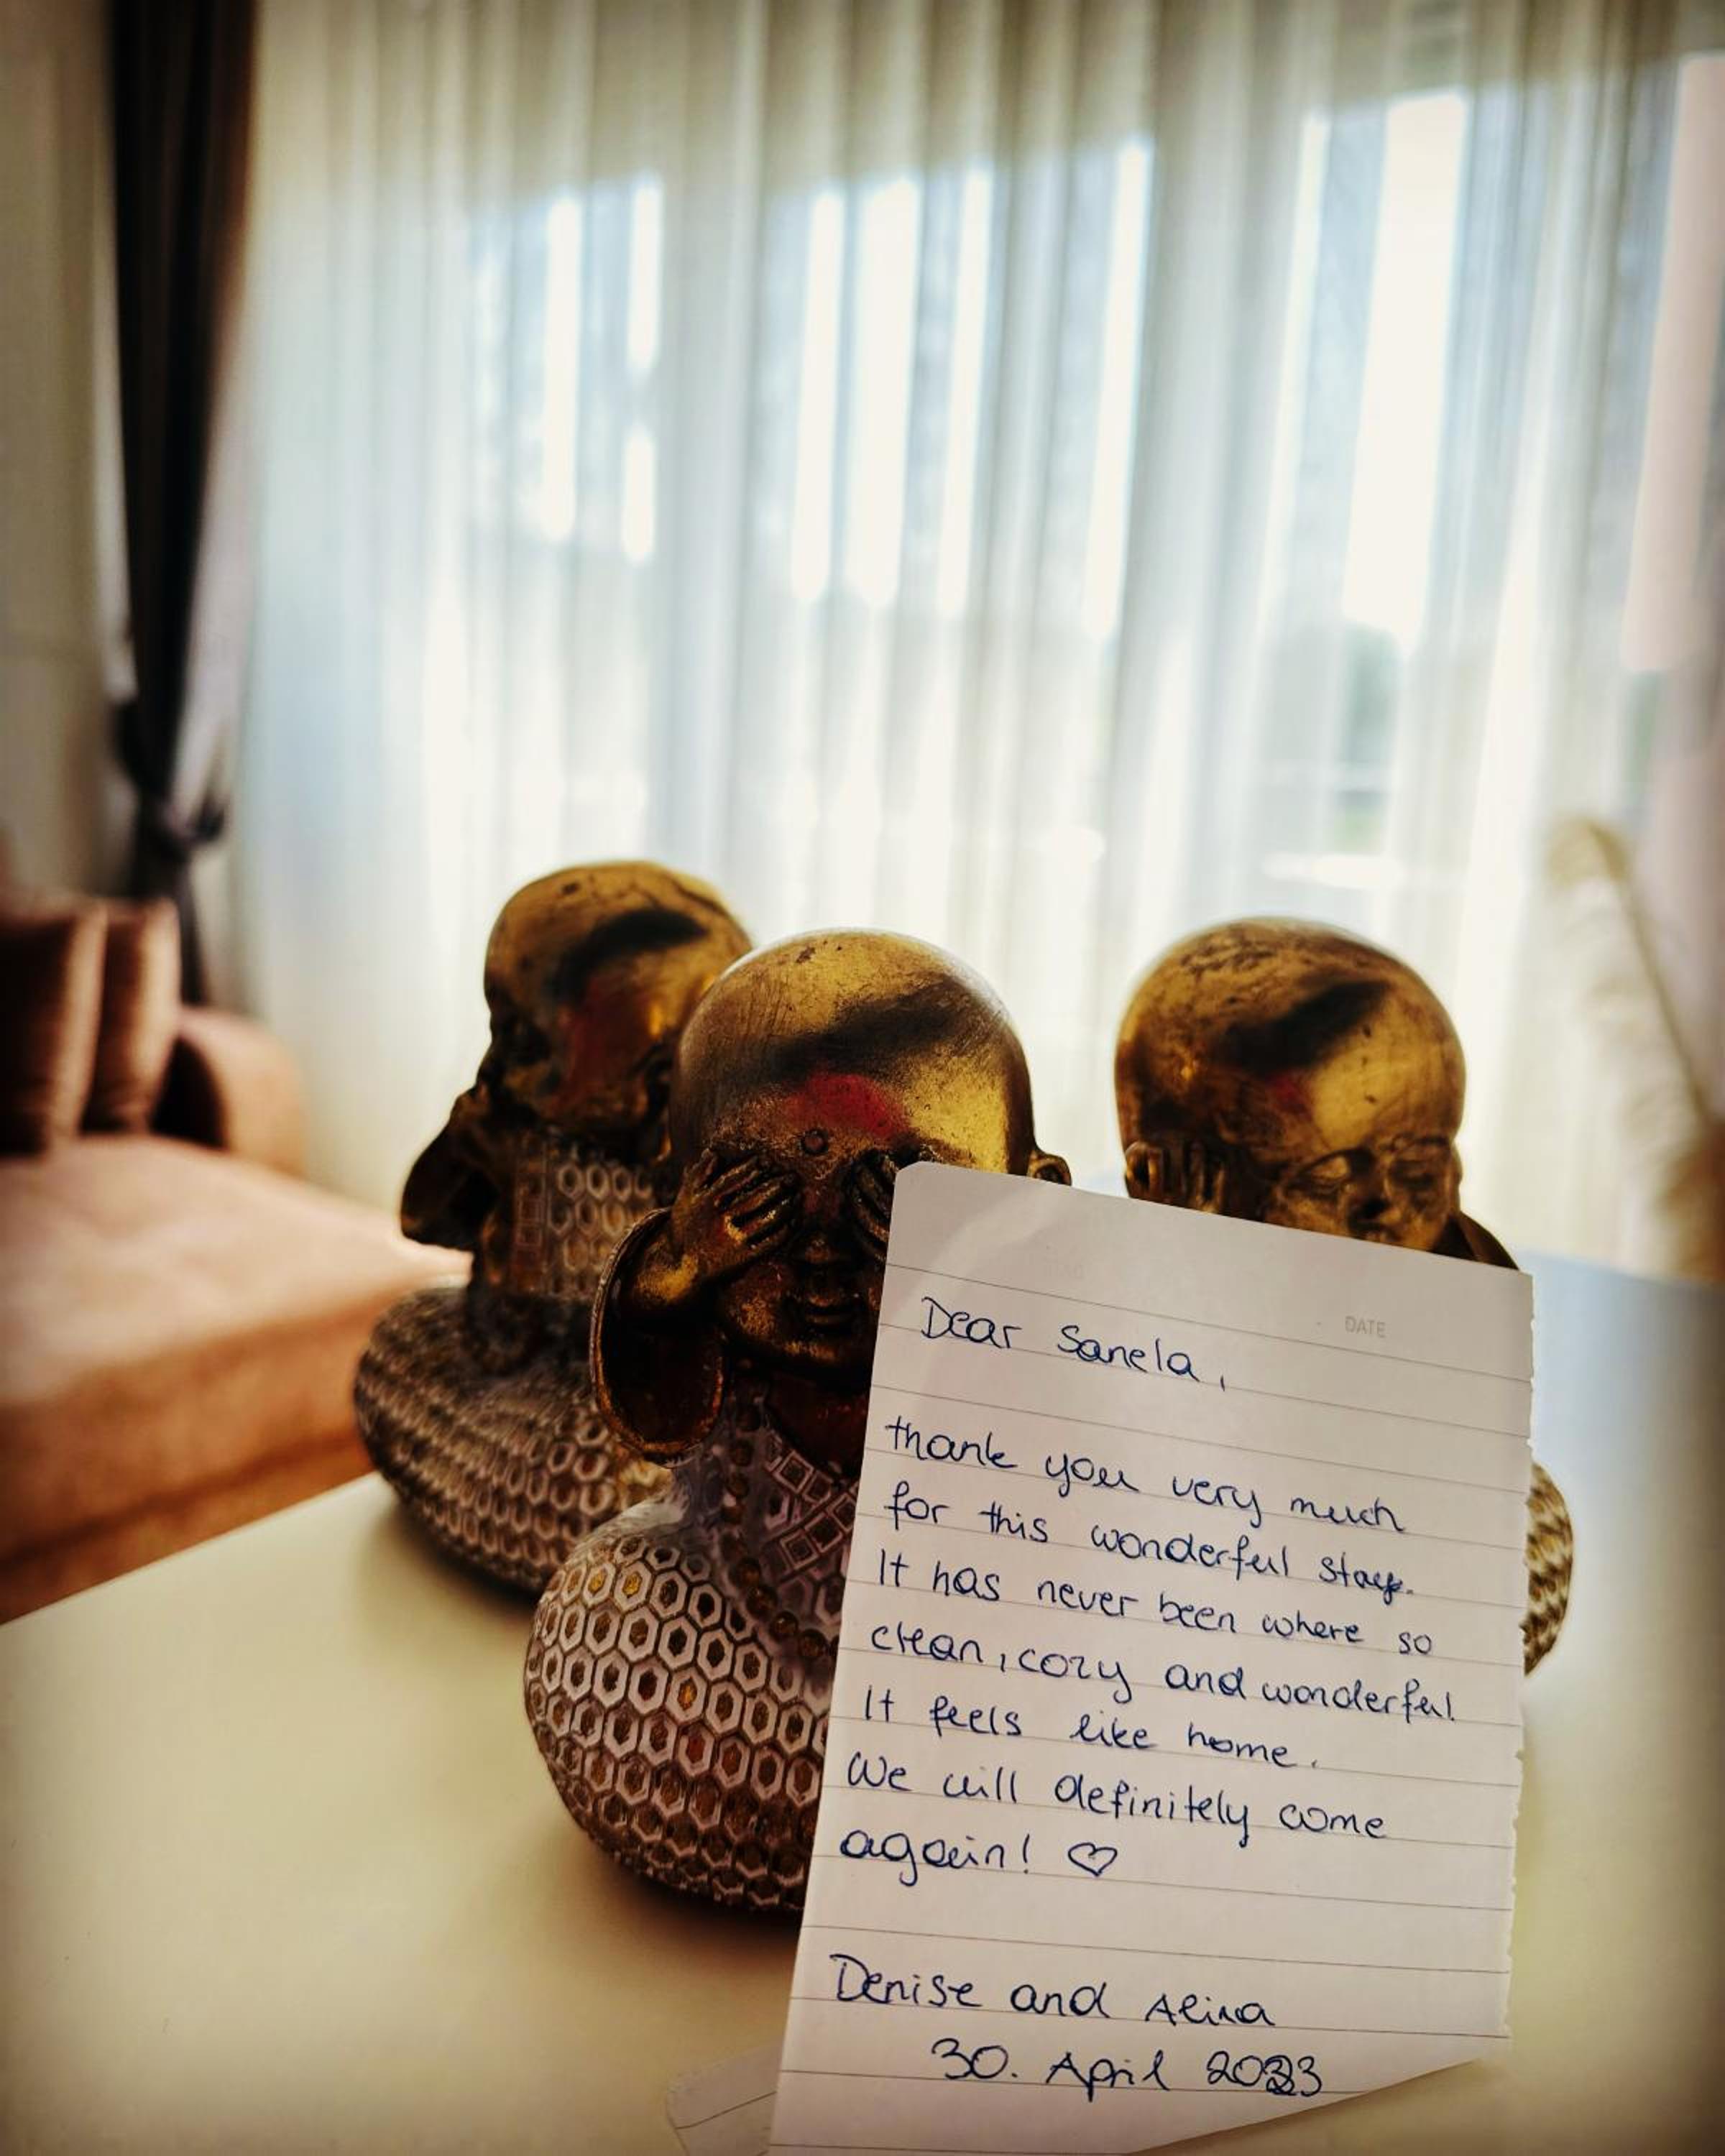 DATE
Dear Sanela,
thank you very much
for this wonderful stay.
It has never been where so
clean, cozy and wonderful
It feels like home.
We will definitely come
again! ♡
Denise and Alina
30. April 2023